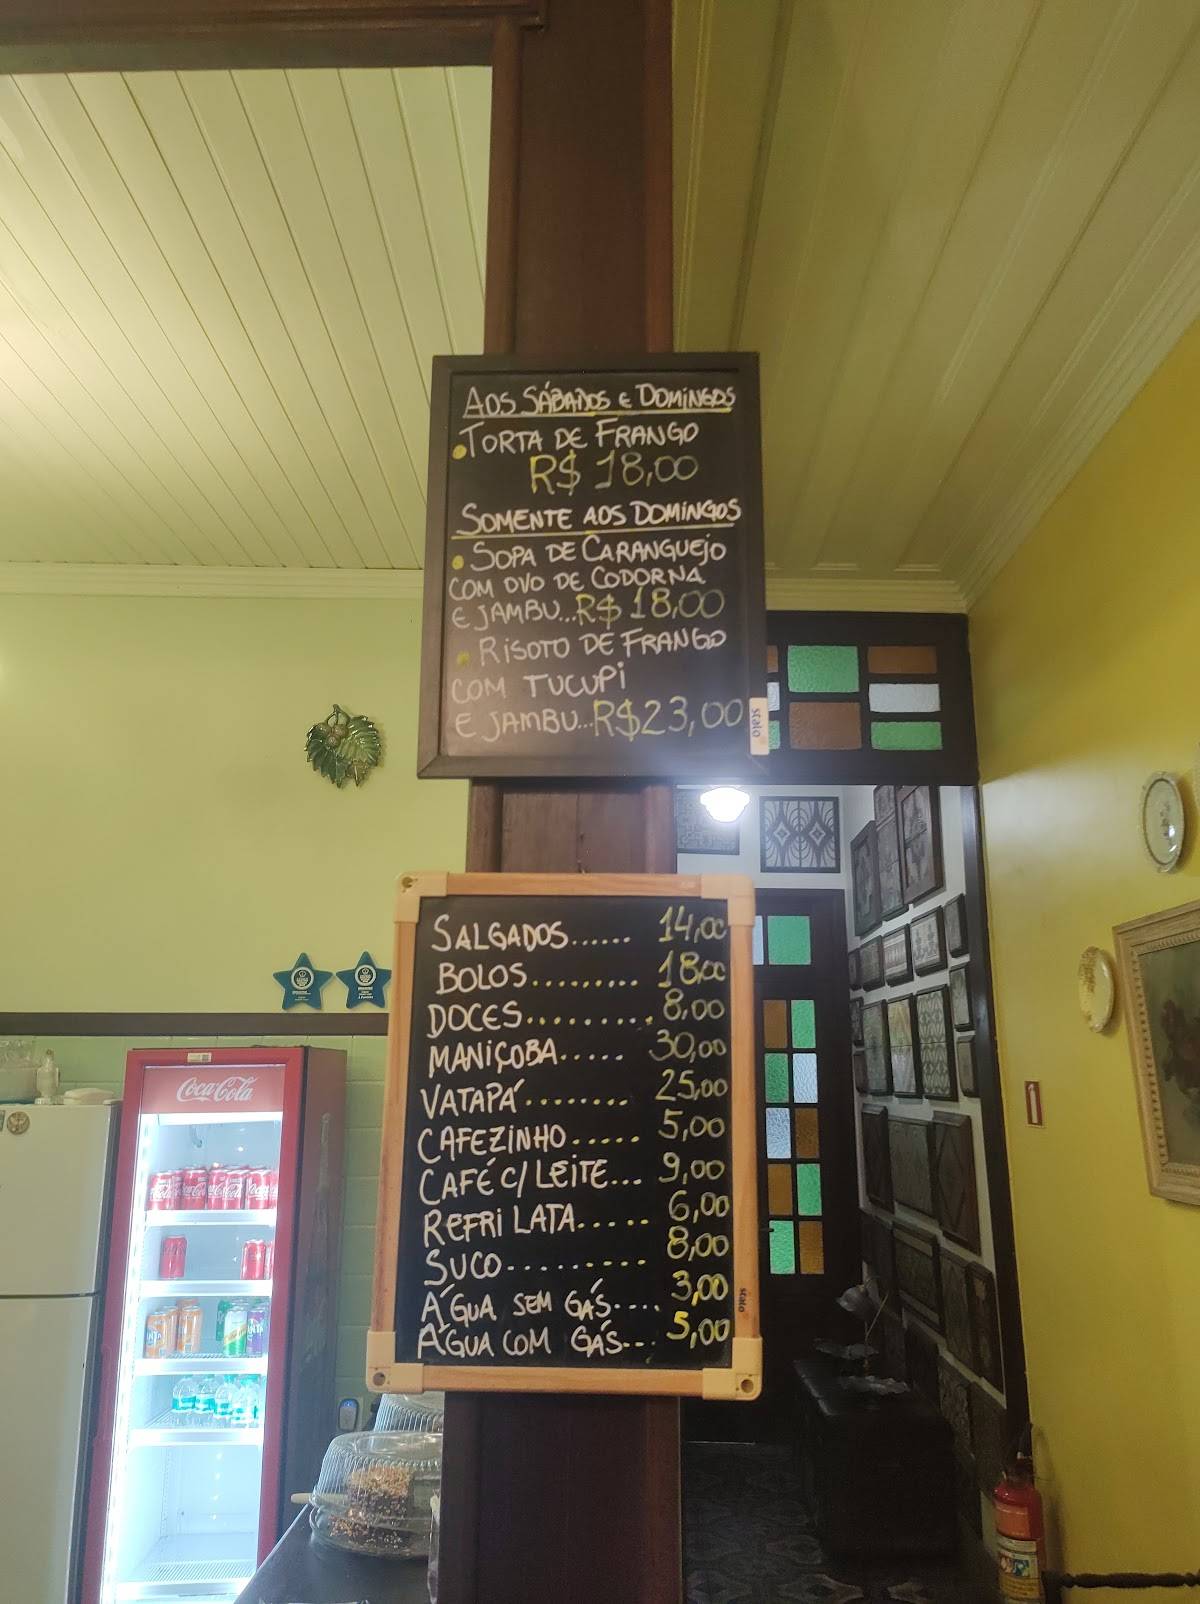 AOS SÁBADOS E DOMINGOS
• TORTA DE FRANGO
R$ 18,00
SOMENTE AOS DOMINGOS
• SOPA DE CARANGUEJO
COM OVO DE CODORNA
E JAMBU...R$ 18,00
• RISOTO DE FRANGO
COM TUCUPI
E JAMBU...R$ 23,00
stalo
SALGADOS...... 14,00
BOLOS.......... 18,00
DOCES.......... 8,00
MANIÇOBA..... 30,00
VATAPÁ........ 25,00
CAFEZINHO..... 5,00
CAFÉ C/ LEITE... 9,00
REFRI LATA..... 6,00
SUCO......... 8,00
ÁGUA SEM GÁS.... 3,00
ÁGUA COM GÁS... 5,00
stalo
Coca-Cola